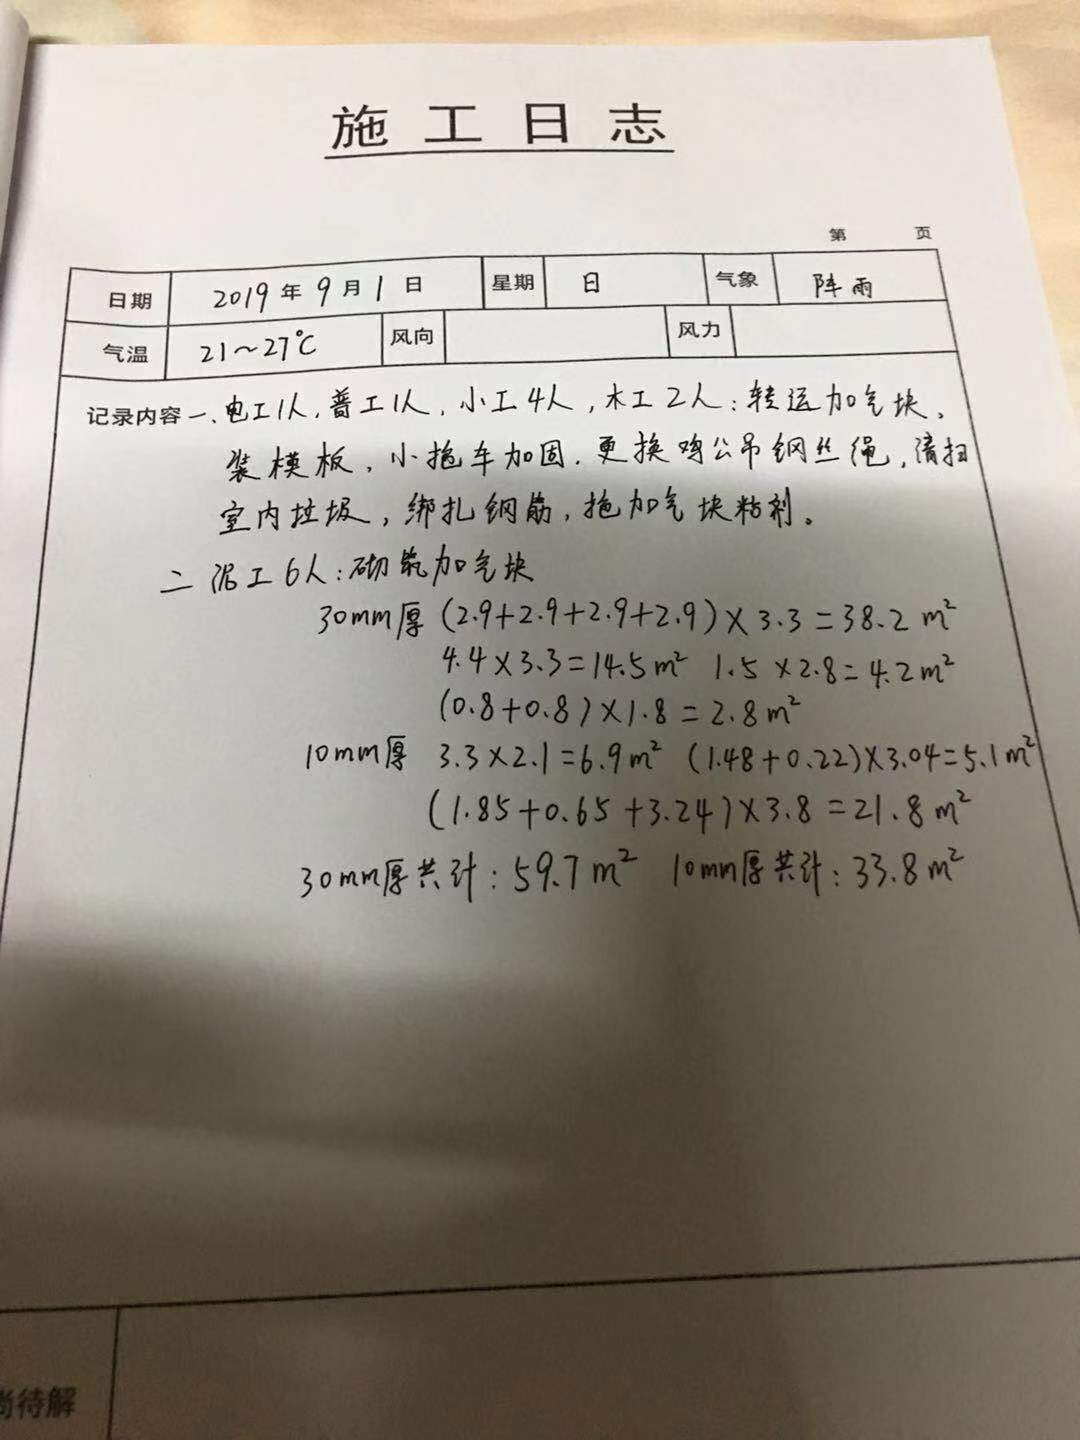 施工日志
第 页
日期 2019年9月1日 星期 日 气象 阵雨
气温 21～27℃ 风向 风力
记录内容 一、电工1人,普工1人,小工4人,木工2人:转运加气块、
装模板,小拖车加固,更换鸡公吊钢丝绳,清扫
室内垃圾,绑扎钢筋,拖加气块粘剂。
二 泥工6人:砌筑加气块
30mm厚 (2.9+2.9+2.9+2.9)×3.3=38.2m²
4.4×3.3=14.5m² 1.5×2.8=4.2m²
(0.8+0.8)×1.8=2.8m²
10mm厚 3.3×2.1=6.9m² (1.48+0.22)×3.04=5.1m²
(1.85+0.65+3.24)×3.8=21.8m²
30mm厚共计:59.7m² 10mm厚共计:33.8m²
尚待解